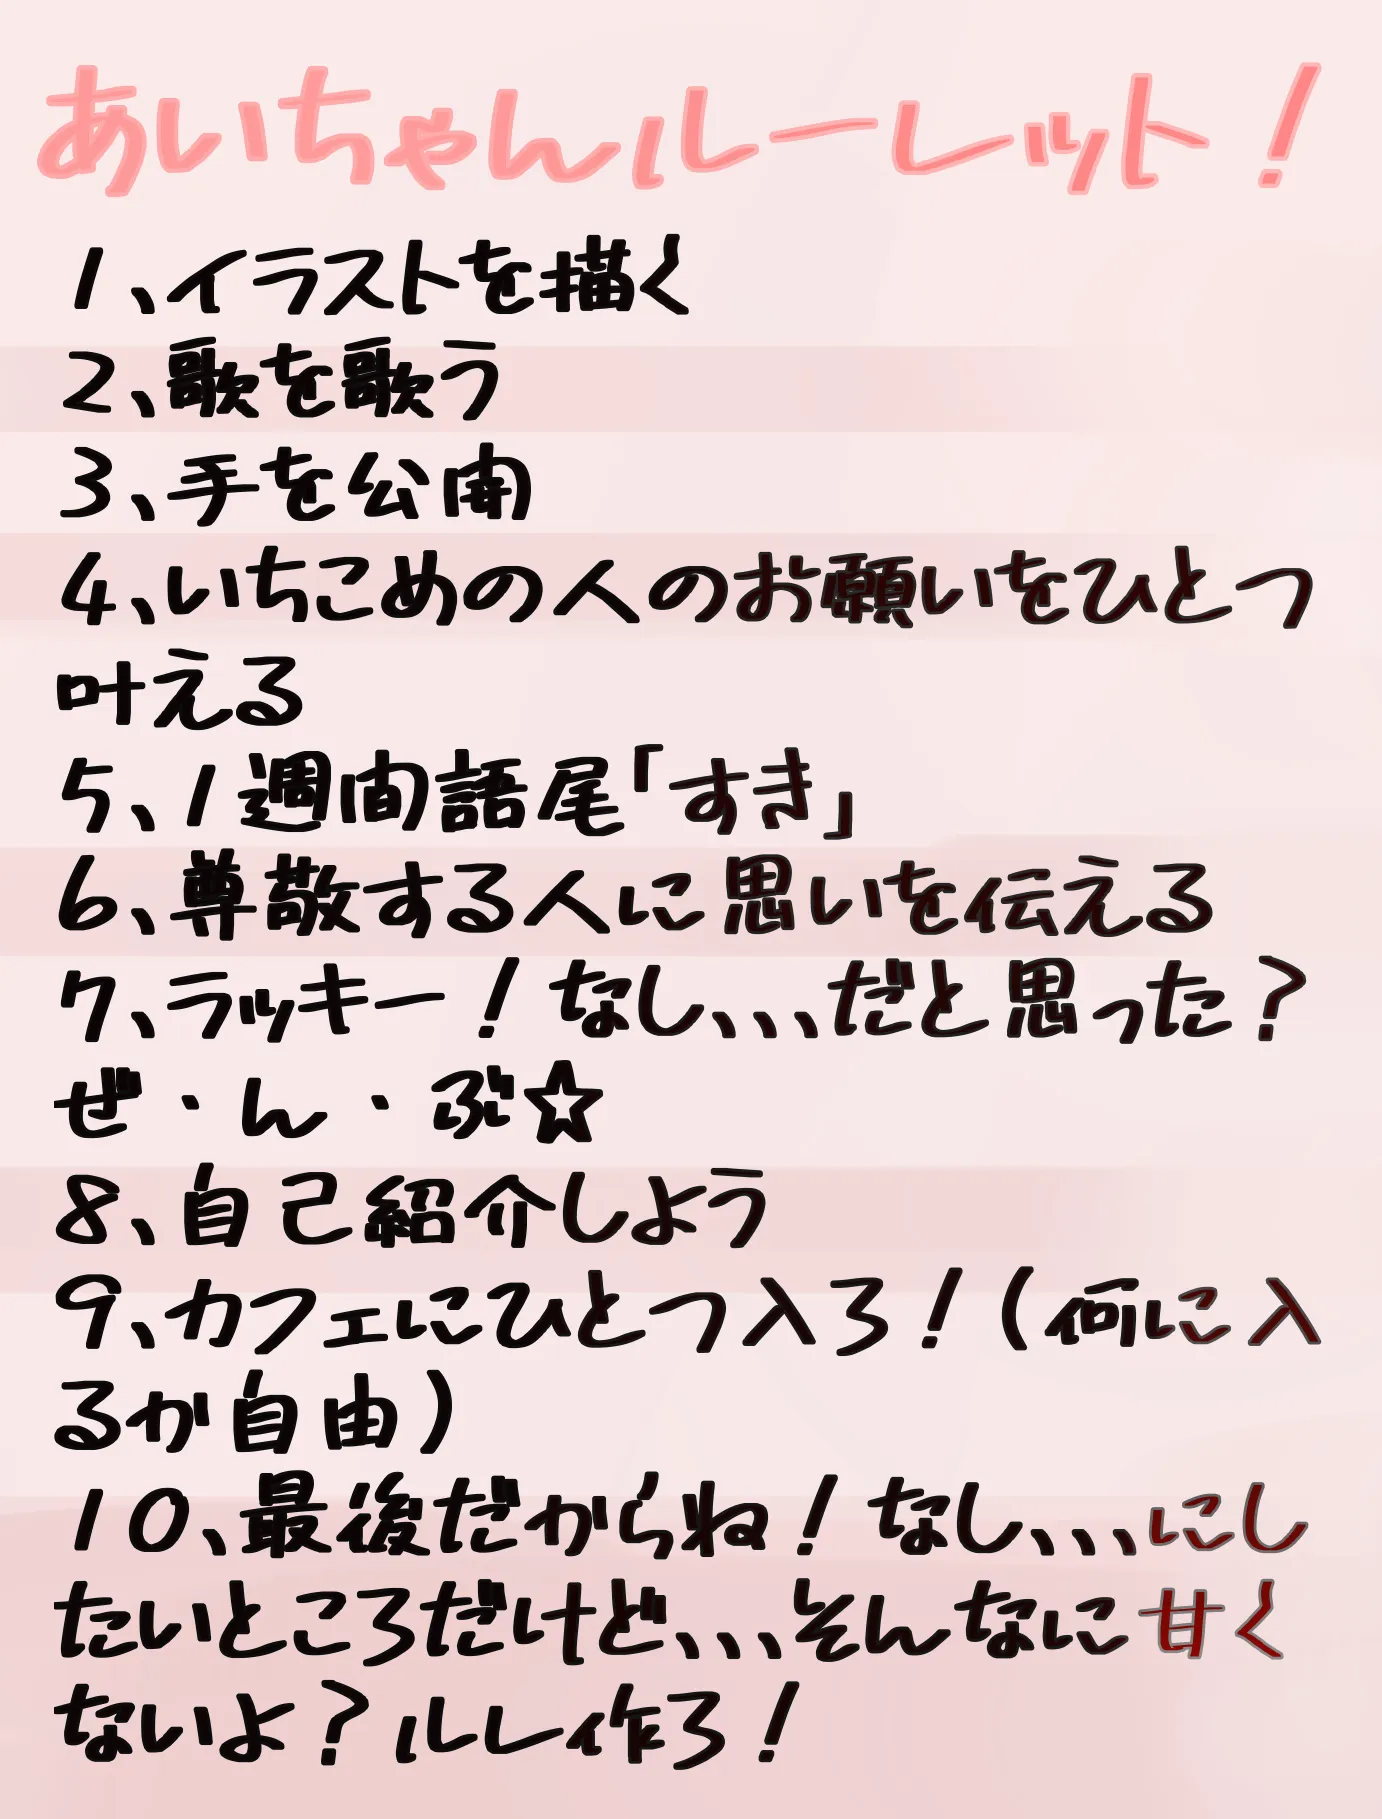 あいちゃんルーレット！
1、イラストを描く
2、歌を歌う
3、手を公開
4、いちこめの人のお願いをひとつ
叶える
5、1週間語尾「すき」
6、尊敬する人に思いを伝える
7、ラッキー！なし、、、だと思った？
ぜ・ん・ぶ☆
8、自己紹介しよう
9、カフェにひとつ入ろ！(何に入
るか自由)
10、最後だからね！なし、、、にし
たいところだけど、、、そんなに甘く
ないよ？ルレ作ろ！